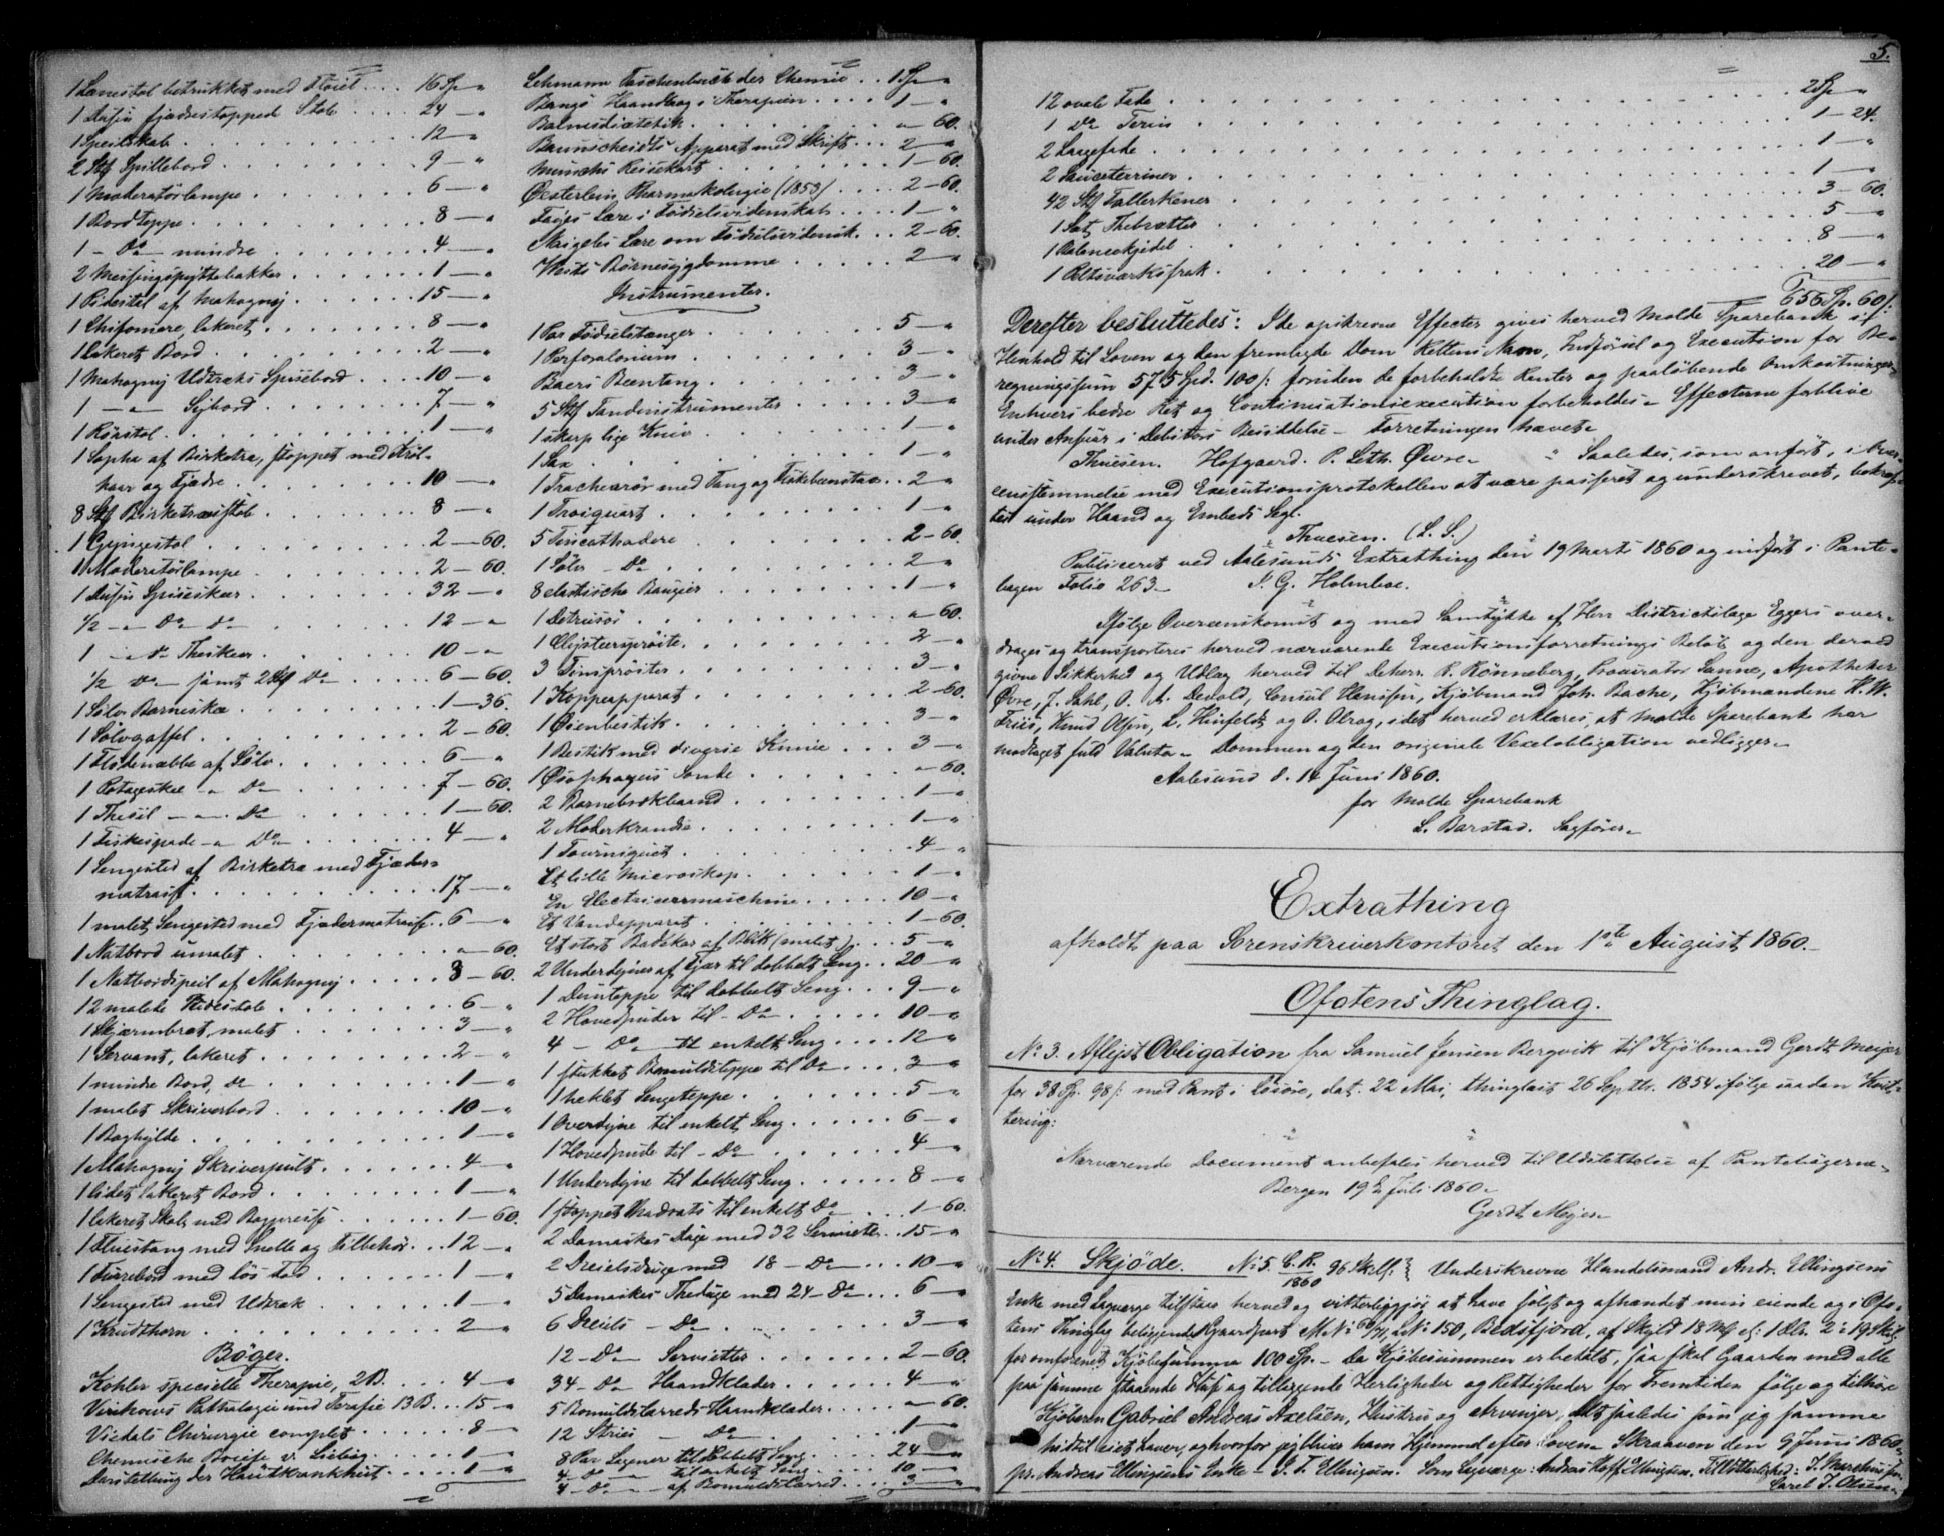 1 Lænestol betrukket med Fløiel . . . 16 Sp – „
1 Dusin fjædrestoppede Stole . . . . 24 – „
1 Speilskab . . . . . . . 12 – „
2 Stk Spillebord . . . . . . 9 – „
1 Moderatørlampe . . . . . . 6 – „
1 Bordteppe . . . . . . . 8 – „
1 – Do – mindre . . . . . . 4 – „
2 Messingspyttebakker . . . . . 1 – „
1 Pidestal af Mahogny . . . . . 15 – „
1 Chifoniere, lakeret . . . . . 8 – „
1 lakeret Bord . . . . . . 2 – „
1 Mahogny Udtræks Spisebord . . . . 10 – „
1 – „ – Sybord . . . . . . 7 – „
1 Rørstol . . . . . . . 1 – „
1 Sopha af Birketræ, stoppet med Krøl-
haar og Fjædre . . . . . . 10 – „
8 Stk Birketræsstole . . . . . 8 – „
1 Gyngestol . . . . . . . 2 – 60.
1 Moderatørlampe . . . . . . 2 – 60.
1 Dusin Spiseskeer . . . . . 32 – „
1/2 – „ – Do – Do . . . . . 12 – „
1 – „ Do Theskeer . . . . . 10 – „
1/2 Do – samt 2 Stk Do . . . . 6 – 60.
1 Sølv Barneske . . . . . . 1 – 36.
1 Sølvgaffel . . . . . . . 2 – 60.
1 Flødenæbbe af Sølv . . . . . 6 – „
1 Potageskee – „ Do . . . . . 7 – 60.
1 Thesil – „ – Do . . . . . 1 – 60.
1 Fiskespade – „ Do . . . . . 4 – „
1 Sengested af Birketræ med Fjæder-
matrasse . . . . . . . 17 – „
1 malet Sengested med Fjædermatrasse . . 6 – „
1 Natbord umalet . . . . . . „ – 60.
1 Natbordspeil af Mahogny . . . . 3 – 60.
12 malede Pidestole . . . . . 6 – „
1 Skjærmbræt, malet . . . . . 3 – „
1 Servant, lakeret . . . . . 2 – „
1 mindre Bord, do . . . . . 1 – „
1 malet Skriverbord . . . . . 10 – „
1 Boghylde . . . . . . . 1 – „
1 Mahogny Skriverpult . . . . . 4 – „
1 lidet lakeret Bord . . . . . 1 – „
1 lakeret Skab med Bogpresse . . . . 1 – 60.
1 Fluestang med Snelle og Tilbehør . . . 12 – „
1 Furrebord med løs Fod . . . . 1 – „
1 Sengested med Udtræk . . . . . 1 – „
1 Krudthorn . . . . . . . 2 – „
Bøger.
Kohler specielle Therapie, 2 B. . . . 4 – „
Virchows Pathologie und Terapie 13 B. . . 15 – „
Vidals Chirurgie complet . . . . 8 – „
Chemische Briefe v. Liebig . . . . 1 – „
Darstellung der Hautkrankheit . . . . 1 – „
Lehmann Taschenbuch der Chemie . . 1 Sp – „
Bangs Haandbog i Therapien . . . . 1 – „
Balneodiætetik . . . . . . „ – 60.
Baunscheidts Apparat med Skrift . . . 2 – „
Munchs Reisekart . . . . . 1 – 60.
Oesterlein Pharmakologie (1853) . . . . 2 – 60.
Fayes Lære i Fødselsvidenskab . . . . 1 – „
Skaigelis Lære om Fødselsvidensk. . . . 2 – 60.
Wests Børnesygdomme . . . . . 2 – „
Instrumenter.
1 Par Fødselstænger . . . . . 5 – „
1 Perforatorium . . . . . . 3 – „
Baers Beentang . . . . . . 3 – „
5 Stk Tandinstrumenter . . . . 3 – „
1 skarp lige Kniv . . . . . 1 – „
1 Sax . . . . . . . 1 – „
1 Trachearør med Tang og Fiskebeenstav . . 2 – „
1 Troiquart . . . . . . 1 – „
5 Tincathadere . . . . . . 2 – 60.
1 Sølv – Do . . . . . . 2 – „
8 elastische Bougier . . . . . 1 – „
1 Detrusør . . . . . . . „ – 60.
1 Clystersprøite . . . . . . 2 – „
3 Tinsprøiter . . . . . . 3 – „
1 Koppeapparat . . . . . . 2 – 60.
1 Øienbestik . . . . . . 3 – „
1 Bestik med diverse Knive . . . 3 – „
1 Øsophagus Sonde . . . . . „ – 60.
2 Barnebrokbaand . . . . . . 1 – „
2 Moderkrandse . . . . . . 1 – „
1 Tourniquet . . . . . . 4 – „
Et lille Microskop . . . . . 1 – „
En Electriceermaschine . . . . . 10 – „
Et Vandapparat . . . . . . 1 – 60.
Et stort Badekar af Blik (malet) . . . 5 – „
2 Underdyner af Fjær til dobbelt Seng . . 20 – „
1 Duunteppe til dobbelt Seng . . . 9 – „
2 Hovedpuder til – Do . . . . . 10 – „
4 – Do – til enkelt Seng . . . . 12 – „
1 stukket Bomuldsteppe til Do . . . 3 – „
1 heklet Sengeteppe . . . . . 5 – „
1 Overdyne til enkelt Seng . . . . 6 – „
1 Hovedpude til – Do . . . . . 4 – „
1 Underdyne til dobbelt Seng . . . . 8 – „
1 stoppet Madrats til enkelt Do . . . 1 – 60.
2 Damaskes Duge med 32 Servietter . . 15 – „
2 Dreielsduge med 18 – Do . . . 10 – „
5 Damaskes Theduge med 24 – Do . . . 6 – „
6 Dreiels – Do . . . . . . 3 – „
12 – Do – Servietter . . . . . 2 – 60.
34 – Do – Haandklæder . . . . . 4 – „
5 Bomuldslærreds Haandklæder . . . . „ – 60.
12 Stries – Do . . . . . . 1 – „
8 Par Lagner til dobbelt Seng . . . 24 – „
4 – Do – til enkelt Seng . . . 10 – „
4 – Do – af Bomuldslærred . . . 3 – „
5.
12 ovale Fade . . . . . . . 2 Sp – „
1 Do Terin . . . . . . . 1 – 24.
2 Laagefade . . . . . . . 1 – „
2 Sauceterriner . . . . . . . 1 – „
42 Stk Tallerkener . . . . . . 3 – 60.
1 Sæt Thebretter . . . . . . 5 – „
1 Balanekjedel . . . . . . . 8 – „
1 Peltsværksfrak . . . . . . 20 – „
656 Sp. 60 /:
Derefter besluttedes: I de opskrevne Effecter gives herved Molde Sparebank i
Henhold til Loven og den fremlagde Dom Rettens Navn, Indførsel og Execution for Be-
regningssum 575 Spd. 100 /: foruden de forbeholdte Renter og paaløbende Omkostninger.
Enhvers bedre Ret og Continuationsexecution forbeholdes – Effecterne forblive
under Ansvar i Debitors Besiddelse – Forretningen hævet –
Thuesen. Hofgaard. P. Leth. Øvre – „ Saaledes, som anført, i Over-
eensstemmelse med Executionsprotokollen at være passeret og underskrevet, bekræf-
tes under Haand og Embeds Segl.
Thuesen. (L. S.)
Publiceret ved Aalesunds Extrathing den 19 Marts 1860 og indført i Pante-
bogen Folio 263 – N. G. Holmboe.
Ifølge Overeenskomst og med Samtykke af Herr Districtslæge Eggers over-
drages og transporteres herved nærværende Executionsforretnings Beløb og den derved
givne Sikkerhed og Udlæg herved til DeHerr. R. Rønneberg, Procurator Sanne, Apotheker
Øvre, J. Dahl, O. A. Devold, Consul Hansen, Kjøbmand Joh. Bache, Kjøbmændene H. W.
Friis, Knud Olsen, L. Hinfeldt og O. Olrog, idet herved erklæres, at Molde Sparebank har
modtaget fuld Valuta – Dommen og den originale Vexelobligation vedligger –
Aalesund d. 14 Juni 1860.
for Molde Sparebank
L. Barstad. Sagfører –
Extrathing
afholdt paa Sorenskriverkontoret den 1ste August 1860 –
Ofotens Thinglag.
No 3. Aflyst Obligation fra Samuel Jensen Bergvik til Kjøbmand Gerdt Meyer
for 38 Sp. 98 /: med Pant i Losøie, dat. 22 Mai, thinglæst 26 Septbr. 1854 ifølge saadan Kvit-
tering:
Nærværende Document anbefales herved til Udslettelse af Pantebøgerne –
Bergen 19 de Juli 1860 –
Gerdt Meyer –
No 4. Skjøde. No 5. C. R. 1860 36 Skill: Underskrevne Handelsmand Andr. Ellingsens
Enke med Laugværge tilstaar herved og vitterliggjør at have solgt og afhændet min eiende og i Ofo-
tens Thinglag beliggende Gaardpart M No 60/71, L No 150, Bedsfjord, af Skyld 18 Mk el: 1 Dlr. 2 : 19 Skil.
for omforenet Kjøbesumma 100 Sp. – Da Kjøbesummen er betalt, saa skal Gaarden med alle
paa samme staaende Huse og tilliggende Herligheder og Rettigheder for Fremtiden følge og tilhøre
Kjøberen Gabriel Andreas Axelsen, Hustru og Arvinger, Alt saaledes som jeg samme
hidtil eiet haver, og hvorfor jeg bliver ham Hjemmel efter Loven – Skraaven den 9 Juni 1860 –
pr. Andreas Ellingsens Enke – I. T. Ellingsen. Som Laugværge: Andreas Hoff Ellingsen. Til Vitterlighed: J. Marcheus sen.
Carel J. Olsen –